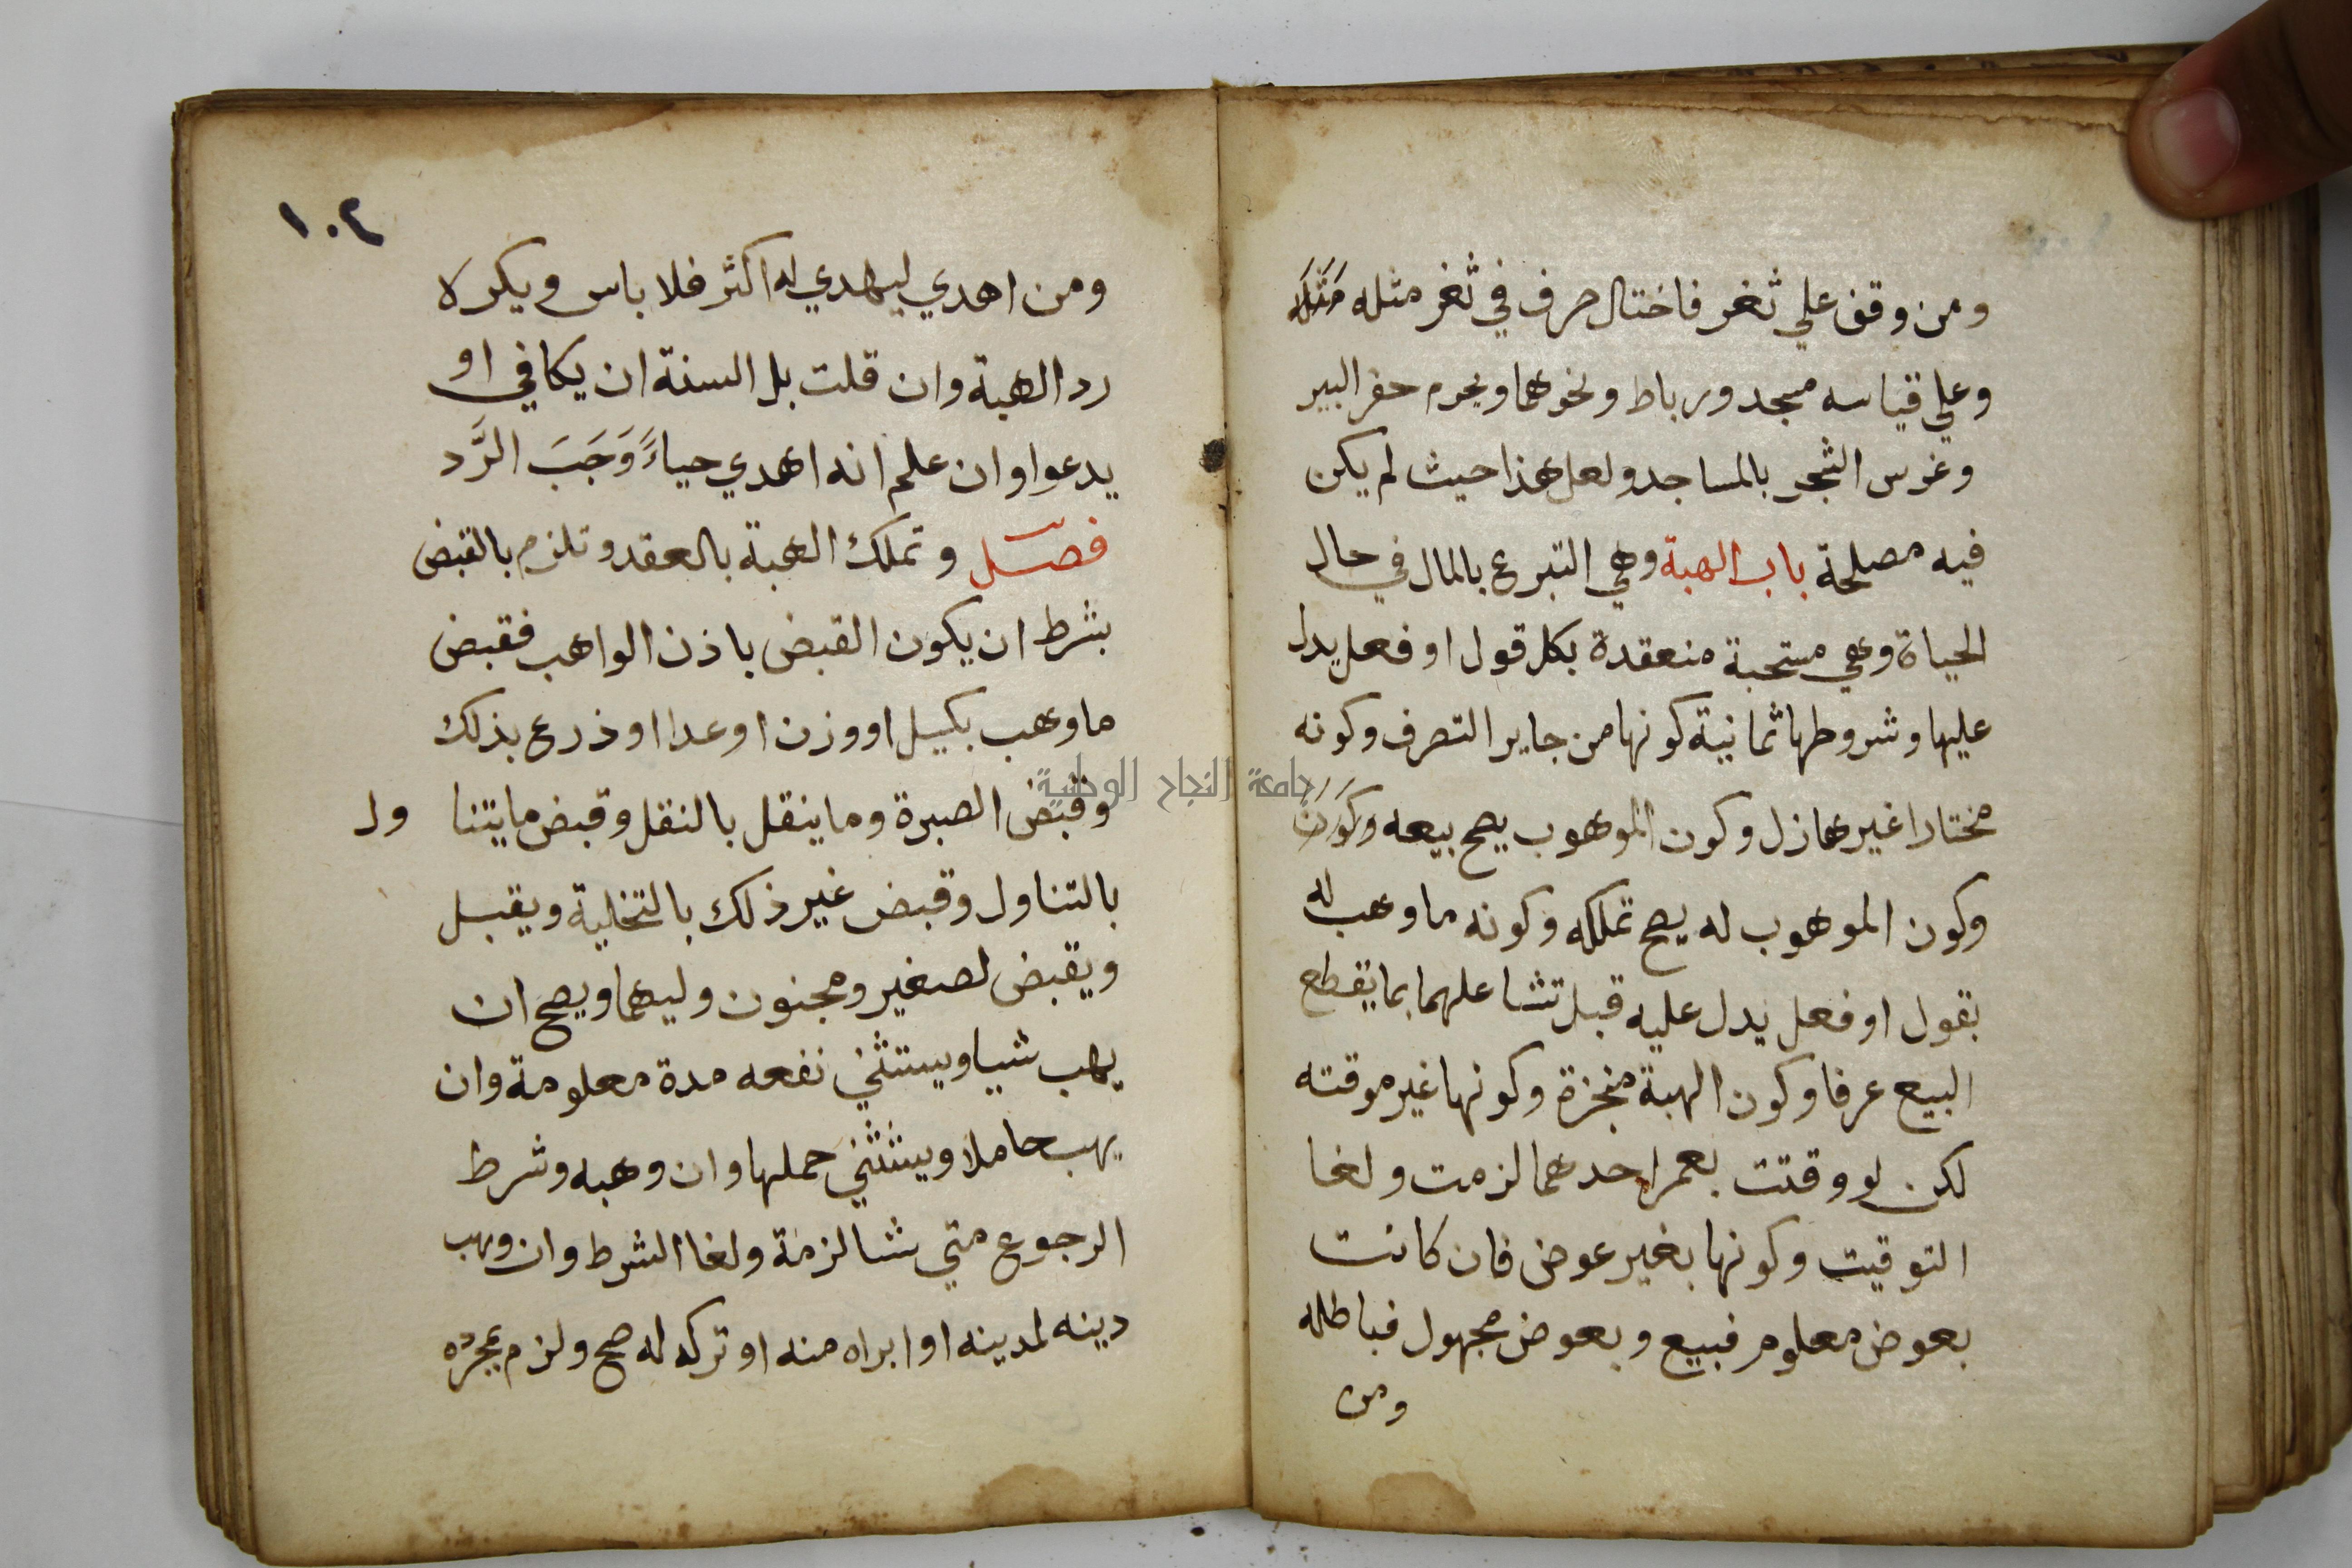 ومن وقف علي ثغر فاختال صرف في ثغر مثله
وعلي قياسه مسجد ورباط ونحوهما ويحرم حفر البير
وغرس الشجر بالمساجد ولعل هذا حيث لم يكن
فيه مصلحة باب الهبة وهي التبرع بالمال في حال
الحياة وهي مستحبة منعقدة بكل قول او فعل يدل
عليها وشروطها ثمانية كونها من جايز التصرف وكونه
مختارا غير هازل وكون الموهوب يصح بيعه وكون
وكون الموهوب له يصح تملكه وكونه ما وهب له
بقول او فعل يدل عليه قبل تشاغلهما بما يقطع
البيع عرفا وكون الهبة منجزة وكونها غير موقته
لكن لو وقتت بعمر احدهما لزمت ولغا
التوقيت وكونها بغير عوض فان كانت
بعوض معلوم فبيع وبعوض مجهول فباطله
ومن
١٠٢
ومن اهدي ليهدي له اكثر فلا باس ويكره
رد الهبة وان قلت بل السنة ان يكافي او
يدعوا وان علم انه اهدي حياءً وَجَبَ الرَّد
فصل وتملك الهبة بالعقد وتلزم بالقبض
بشرط ان يكون القبض باذن الواهب فقبض
ما وهب بكيل او وزن او عدا او ذرع بذلك
وقبض الصبرة وما ينقل بالنقل وقبض ما يتنا ول
بالتناول وقبض غير ذلك بالتخلية ويقبل
ويقبض لصغير ومجنون وليهما ويصح ان
يهب شيا ويستثني نفعه مدة معلومة وان
يهب حاملا ويستثني حملها وان وهبه وشرط
الرجوع متي شا لزمة ولغا الشرط وان وهب
دينه لمدينه او ابراه منه او تركه له صح ولزم بمجرده
جامعة النجاح الوطنية